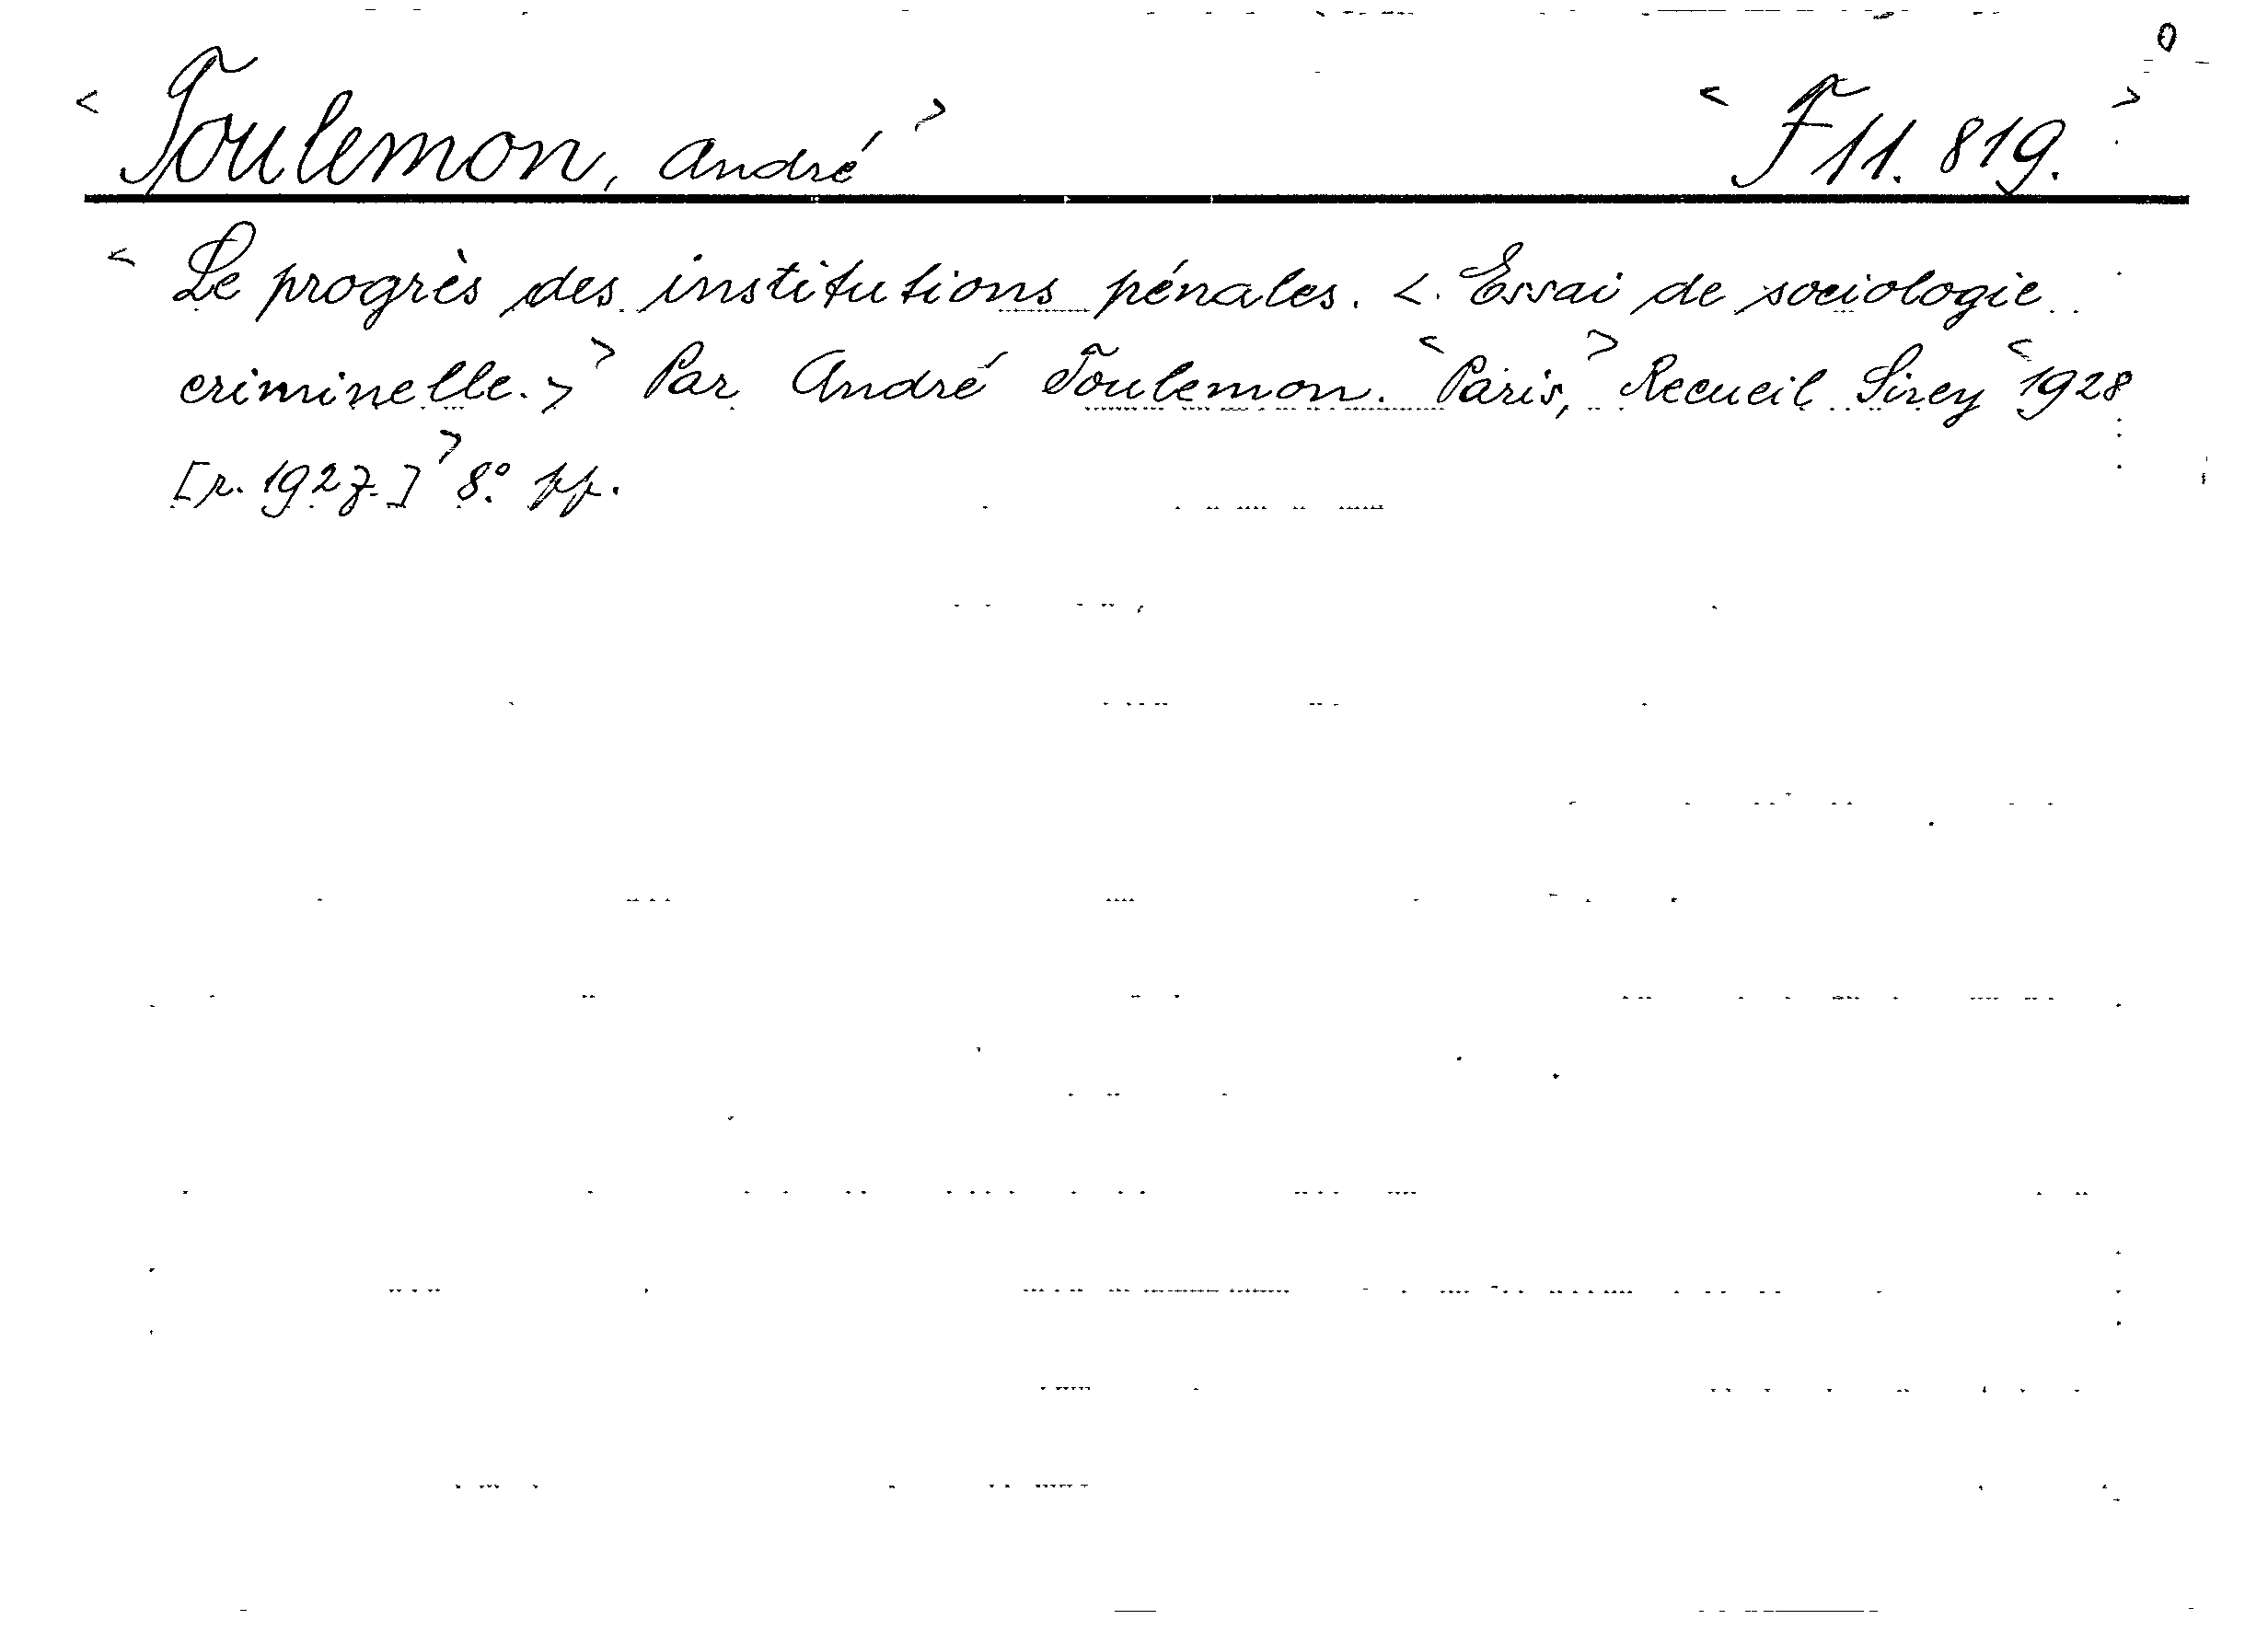 0
< Toulemon, André > < F 11. 819. >
< Le progrès des institutions pénales. <. Essai de sociologie
criminelle. > > Par André Toulemon. < Paris, > Recueil Sirey < 1928
[r. 1927.] > 8.° pp.